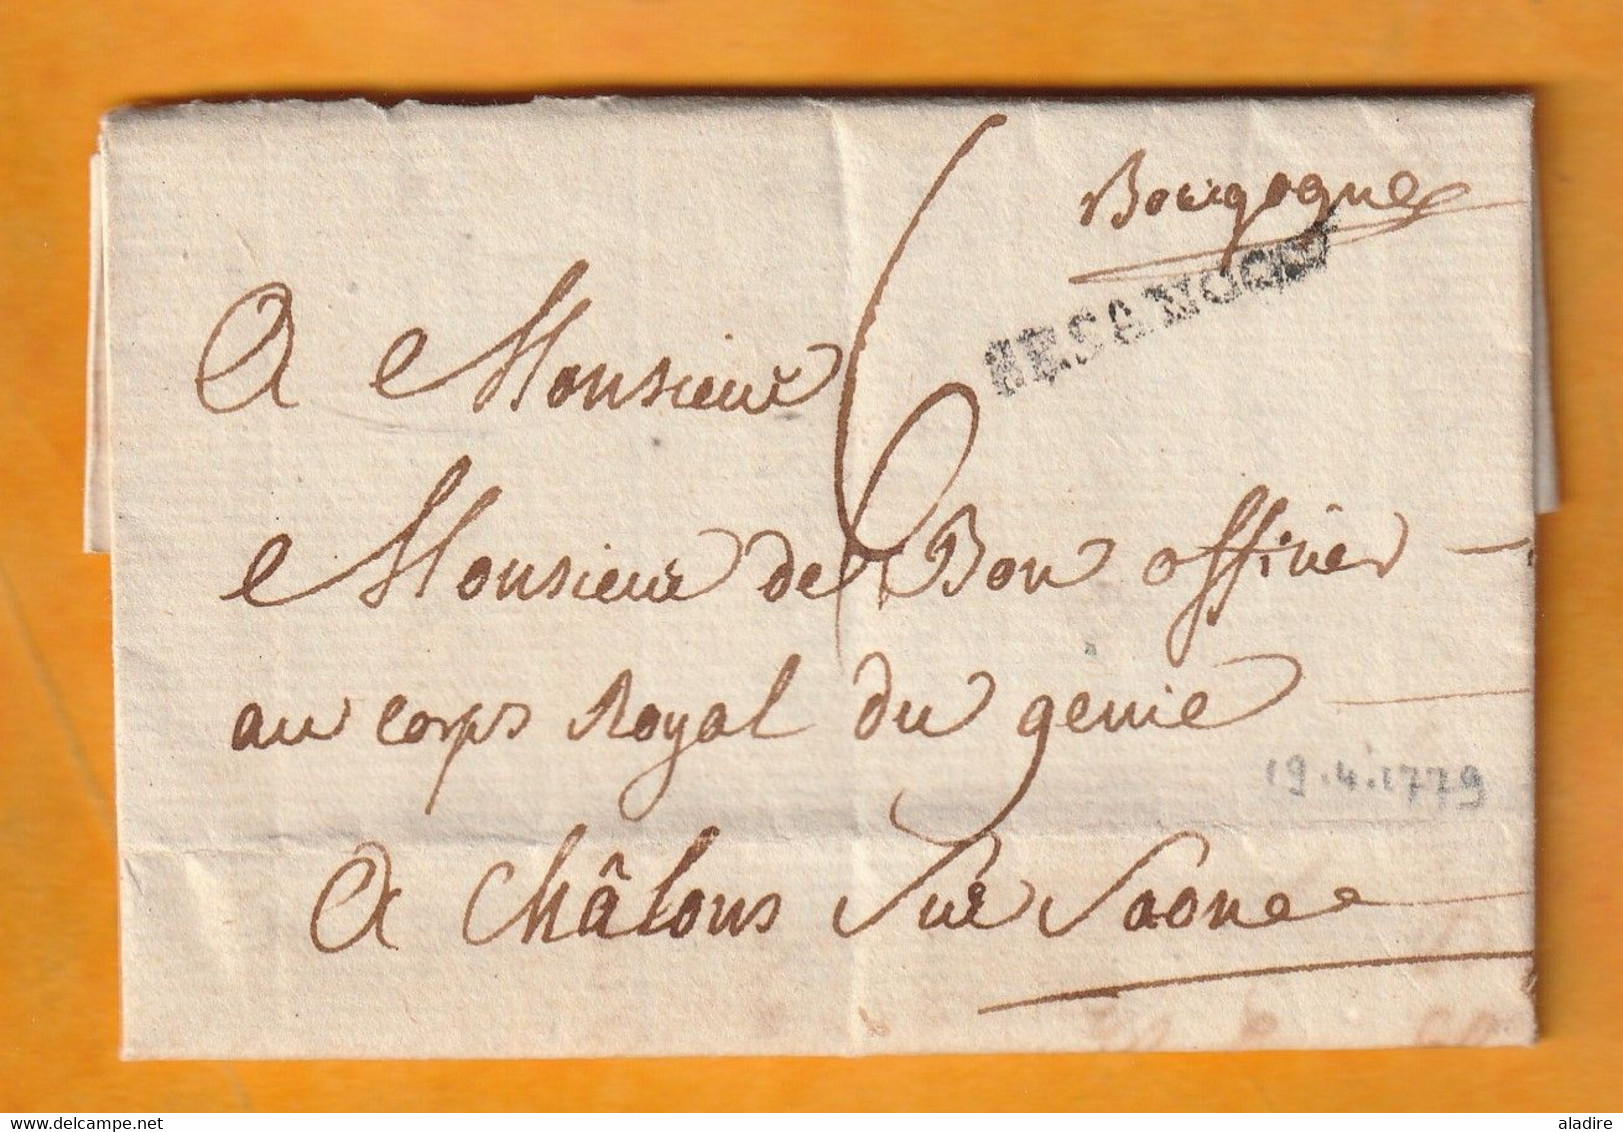 Bourgogne
BESANCON
6
A Monsieur
Monsieur de Bon officier
au corps Royal du genie
19.4.1779
A Châlons Sur Saone
delcampe.net
aladire